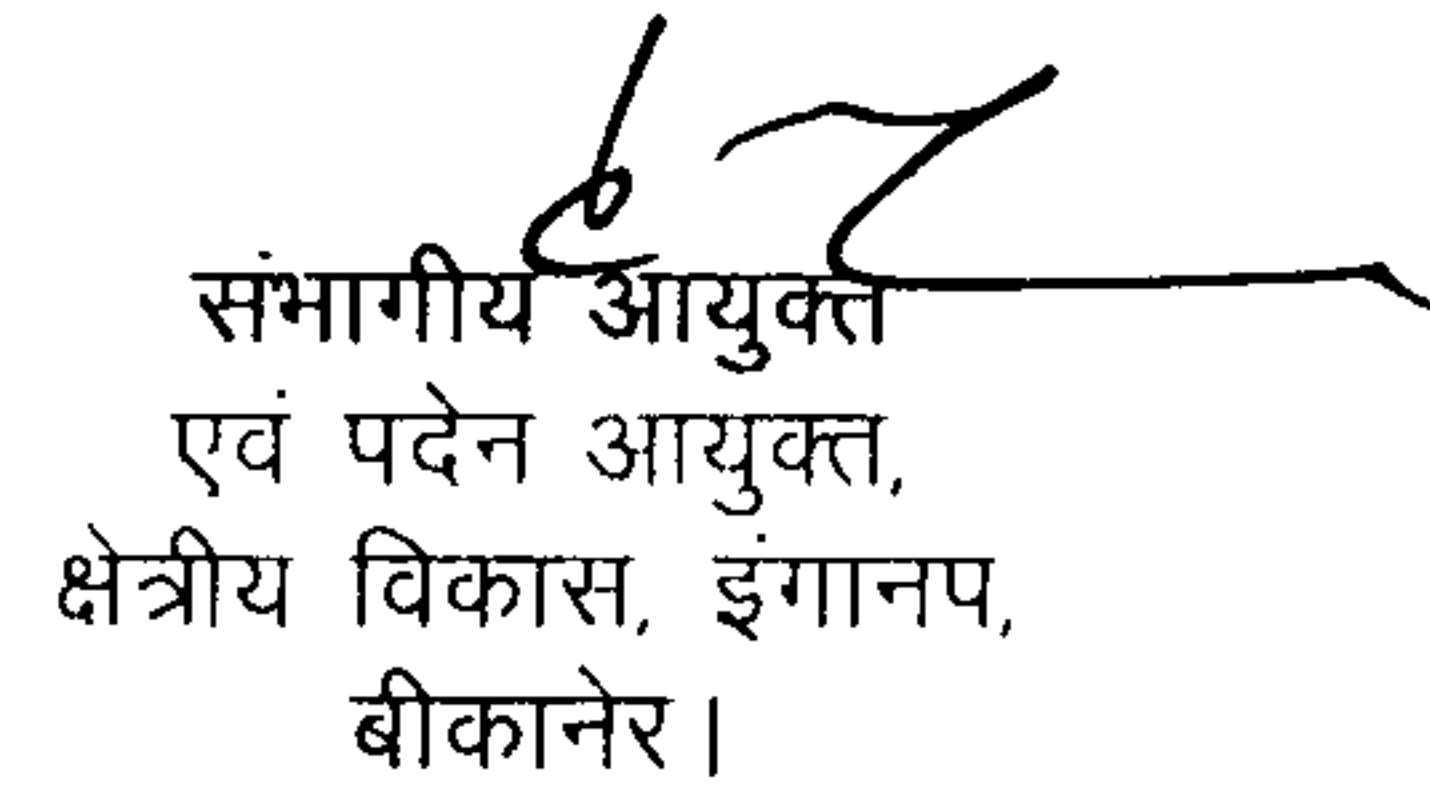 संभागीय आयुक्त
एवं पदेन आयुक्त,
क्षेत्रीय विकास, इंगानप,
बीकानेर।